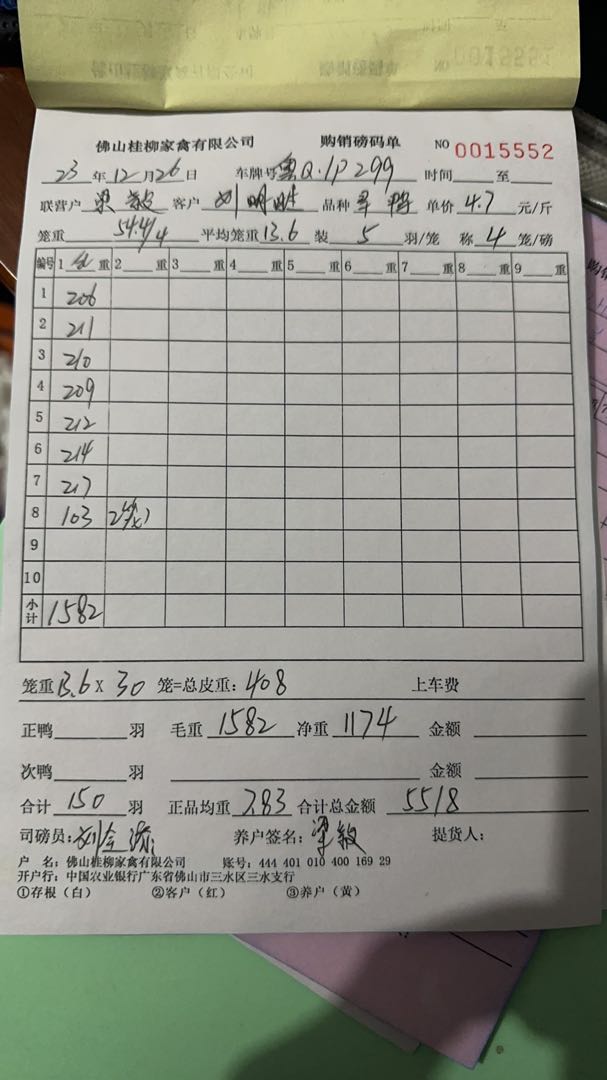 NO 0015551
佛山桂柳家禽有限公司 购销磅码单 NO 0015552
23 年 12 月 26 日 车牌号 粤Q·1P299 时间 至
联营户 梁毅 客户 刘明胜 品种 单价 4.7 元/斤
笼重 54.4/4 平均笼重 13.6 装 5 羽/笼 称 4 笼/磅
编号 1 重 2 重 3 重 4 重 5 重 6 重 7 重 8 重 9 重
1 206
2 211
3 210
4 209
5 212
6 214
7 217
8 103 2笼
9
10
小计 1582
笼重 13.6 X 30 笼=总皮重: 408 上车费
正鸭 羽 毛重 1582 净重 1174 金额
次鸭 羽 金额
合计 150 羽 正品均重 7.83 合计总金额 5518
司磅员: 养户签名: 梁毅 提货人:
户 名: 佛山桂柳家禽有限公司 账号: 444 401 010 400 169 29
开户行: 中国农业银行广东省佛山市三水区三水支行
①存根（白） ②客户（红） ③养户（黄）